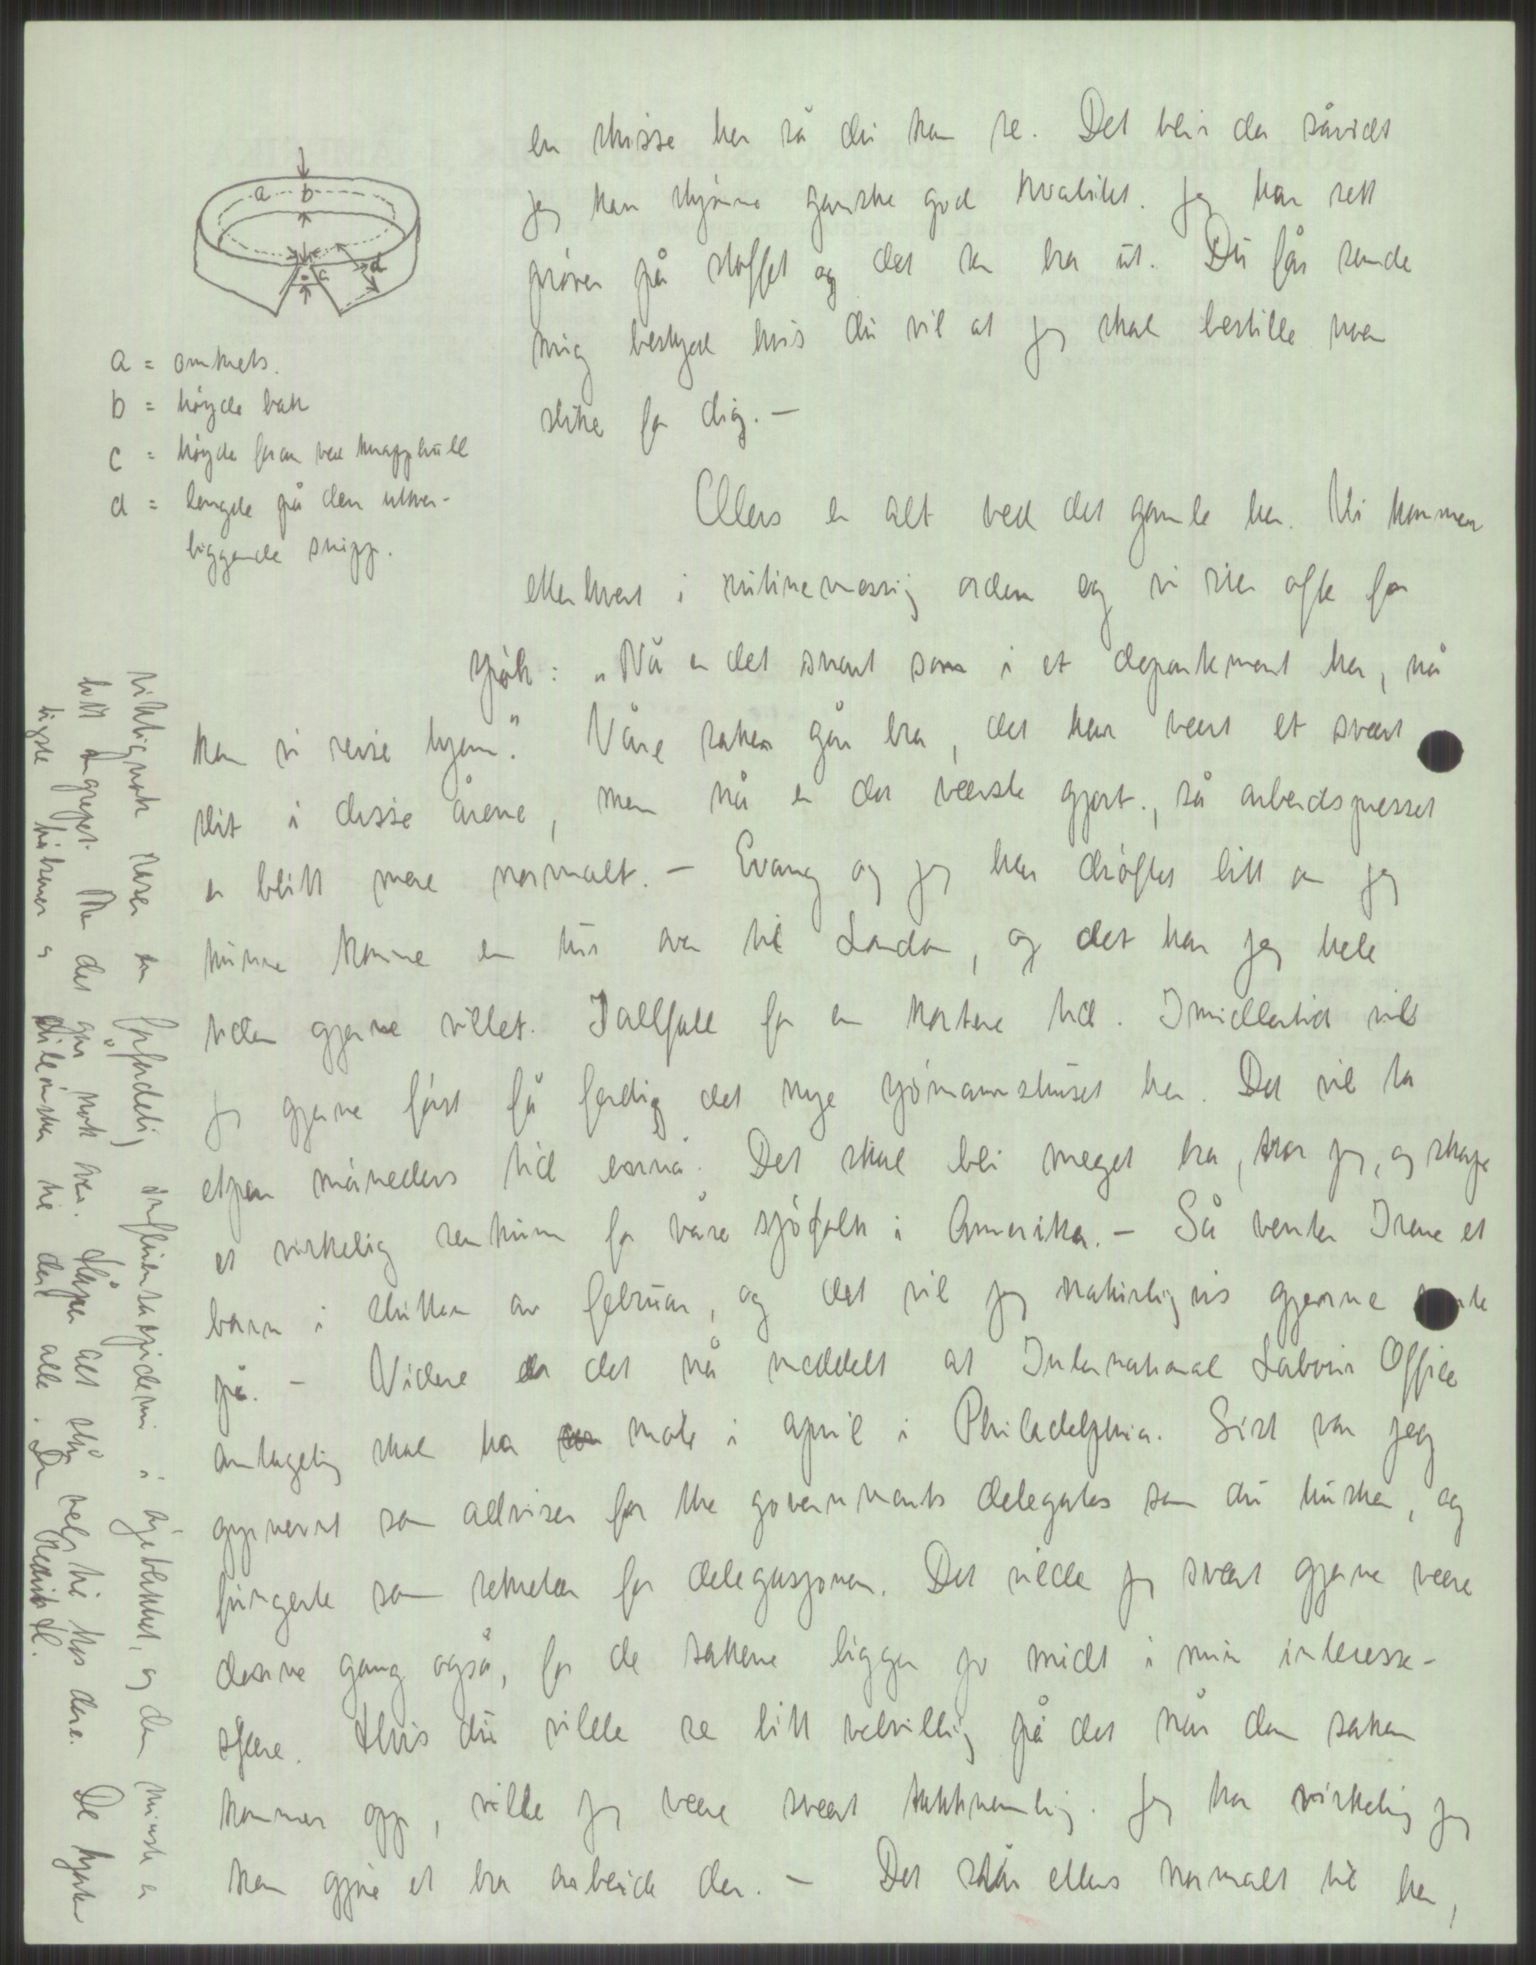 en skisse her så du kan se. Det blir da såvidt
jeg kan skjønne ganske god kvalitet. Jeg har sett
prøver på stoffet og det ser bra ut. Du får sende
mig beskjed hvis du vil at jeg skal bestille noen
slike for dig. –
a b c d
a = omkrets.
b = høyde bak
c = høyde foran ved knapphull
d = lengde på den utover-
liggende snipp.
Ellers er alt ved det gamle her. Vi kommer
etterhvert i rutinemessig orden og vi sier ofte for
spøk: „Nå er det snart som i et departement her, nå
kan vi reise hjem." Våre saker går bra, det har vært et svært
slit i disse årene, men nå er det verste gjort., så arbeidspresset
er blitt mere normalt. – Evang og jeg har drøftet litt om jeg
kunne komme en tur over til London, og det har jeg hele
tiden gjerne villet. Iallfall for en kortere tid. Imidlertid vil
jeg gjerne først få ferdig det nye sjømannshuset her. Det vil ta
etpar måneders tid ennå. Det skal bli meget bra, tror jeg, og skape
et virkelig sentrum for våre sjøfolk i Amerika. – Så venter Irene et
barn i slutten av februar, og det vil jeg naturligvis gjerne vente
på. – Videre er det nå meddelt at International Labour Office
antagelig skal ha møte i april i Philadelphia. Sist var jeg
oppnevnt som adviser for the governments delegates som du husker, og
fungerte som sekretær for delegasjonen. Det vilde jeg svært gjerne være
denne gang også, for de sakene ligger jo midt i min interesse-
sfære. Hvis du vilde se litt velvillig på det når den saken
kommer opp, vilde jeg være svært takknemlig. Jeg tror virkelig jeg
kan gjøre et bra arbeide der. – Det står ellers normalt til her,
riktignok raser en forferdelig influensaepidemi i øieblikket, og den minste er
blitt angrepet. Men det går nok over. Håper alt står vel til hos dere. De hjertel
igste hilsener og til dere alle. Din Fredrik